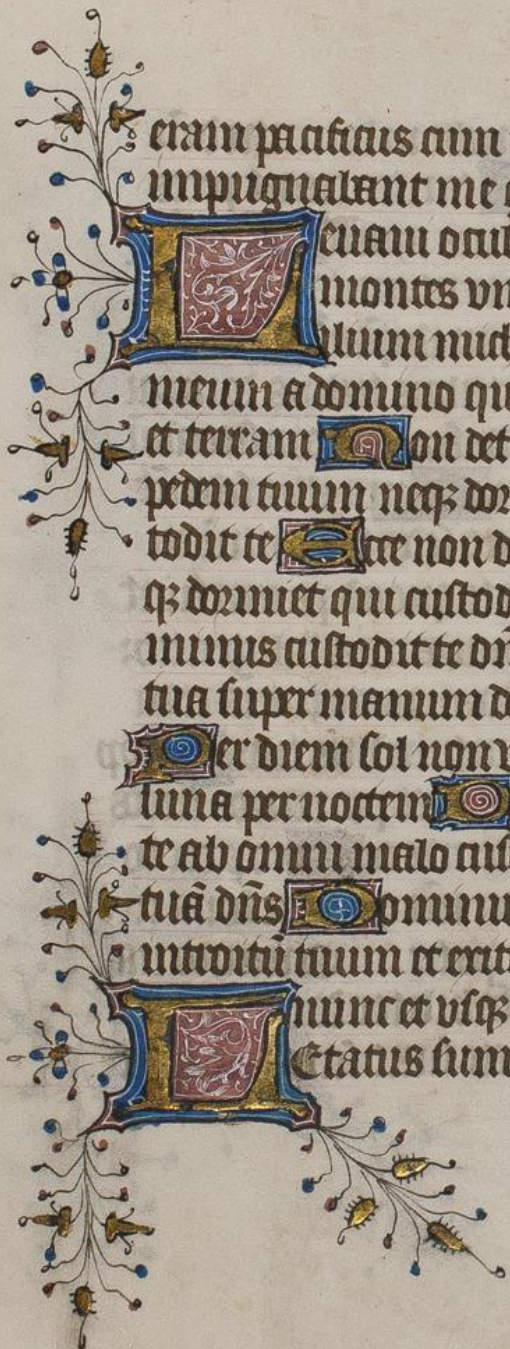 eram pacificus cum
impugnabant me
Leuaui ocul
montes vn
ilium mich
meum a domino qu
et terram Non det
pedem tuum neqꝫ dor
todit te Ecce non d
qꝫ dormiet qui custod
minus custodit te dn̄
tua super manum d
Per diem sol non v
luna per noctem D
te ab omni malo cus
tuā dn̄s Dominu
introitū tuum et exit
nunc et vsqꝫ
LEtatus sum